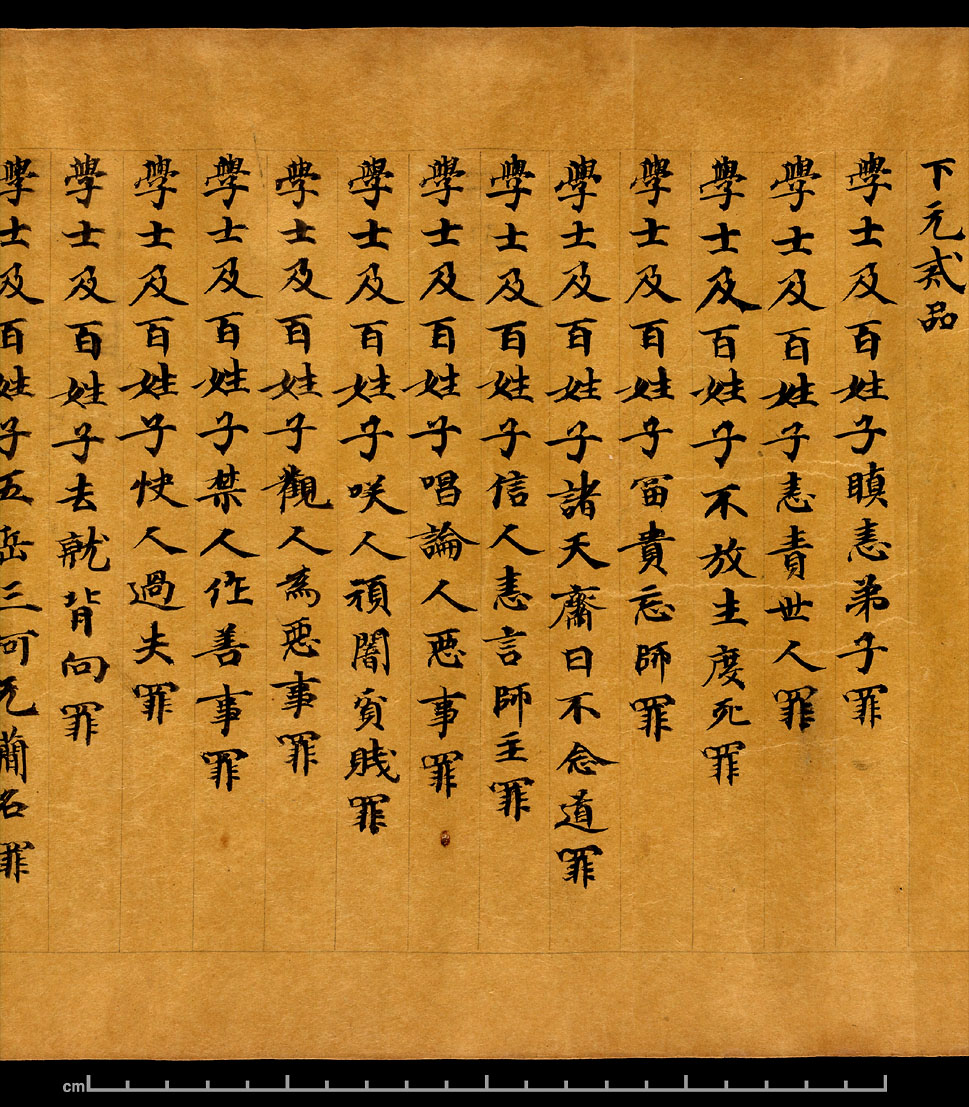 下元貳品
學士及百姓子瞋恚弟子罪
學士及百姓子恚責世人罪
學士及百姓子不放生度死罪
學士及百姓子冨貴忘師罪
學士及百姓子諸天齋日不念道罪
學士及百姓子信人恚言師主罪
學士及百姓子唱論人惡事罪
學士及百姓子咲人頑闇貧賤罪
學士及百姓子觀人為惡事罪
學士及百姓子禁人作善事罪
學士及百姓子快人過失罪
學士及百姓子去就背向罪
學士及百姓子五岳三河无蕳名罪
cm